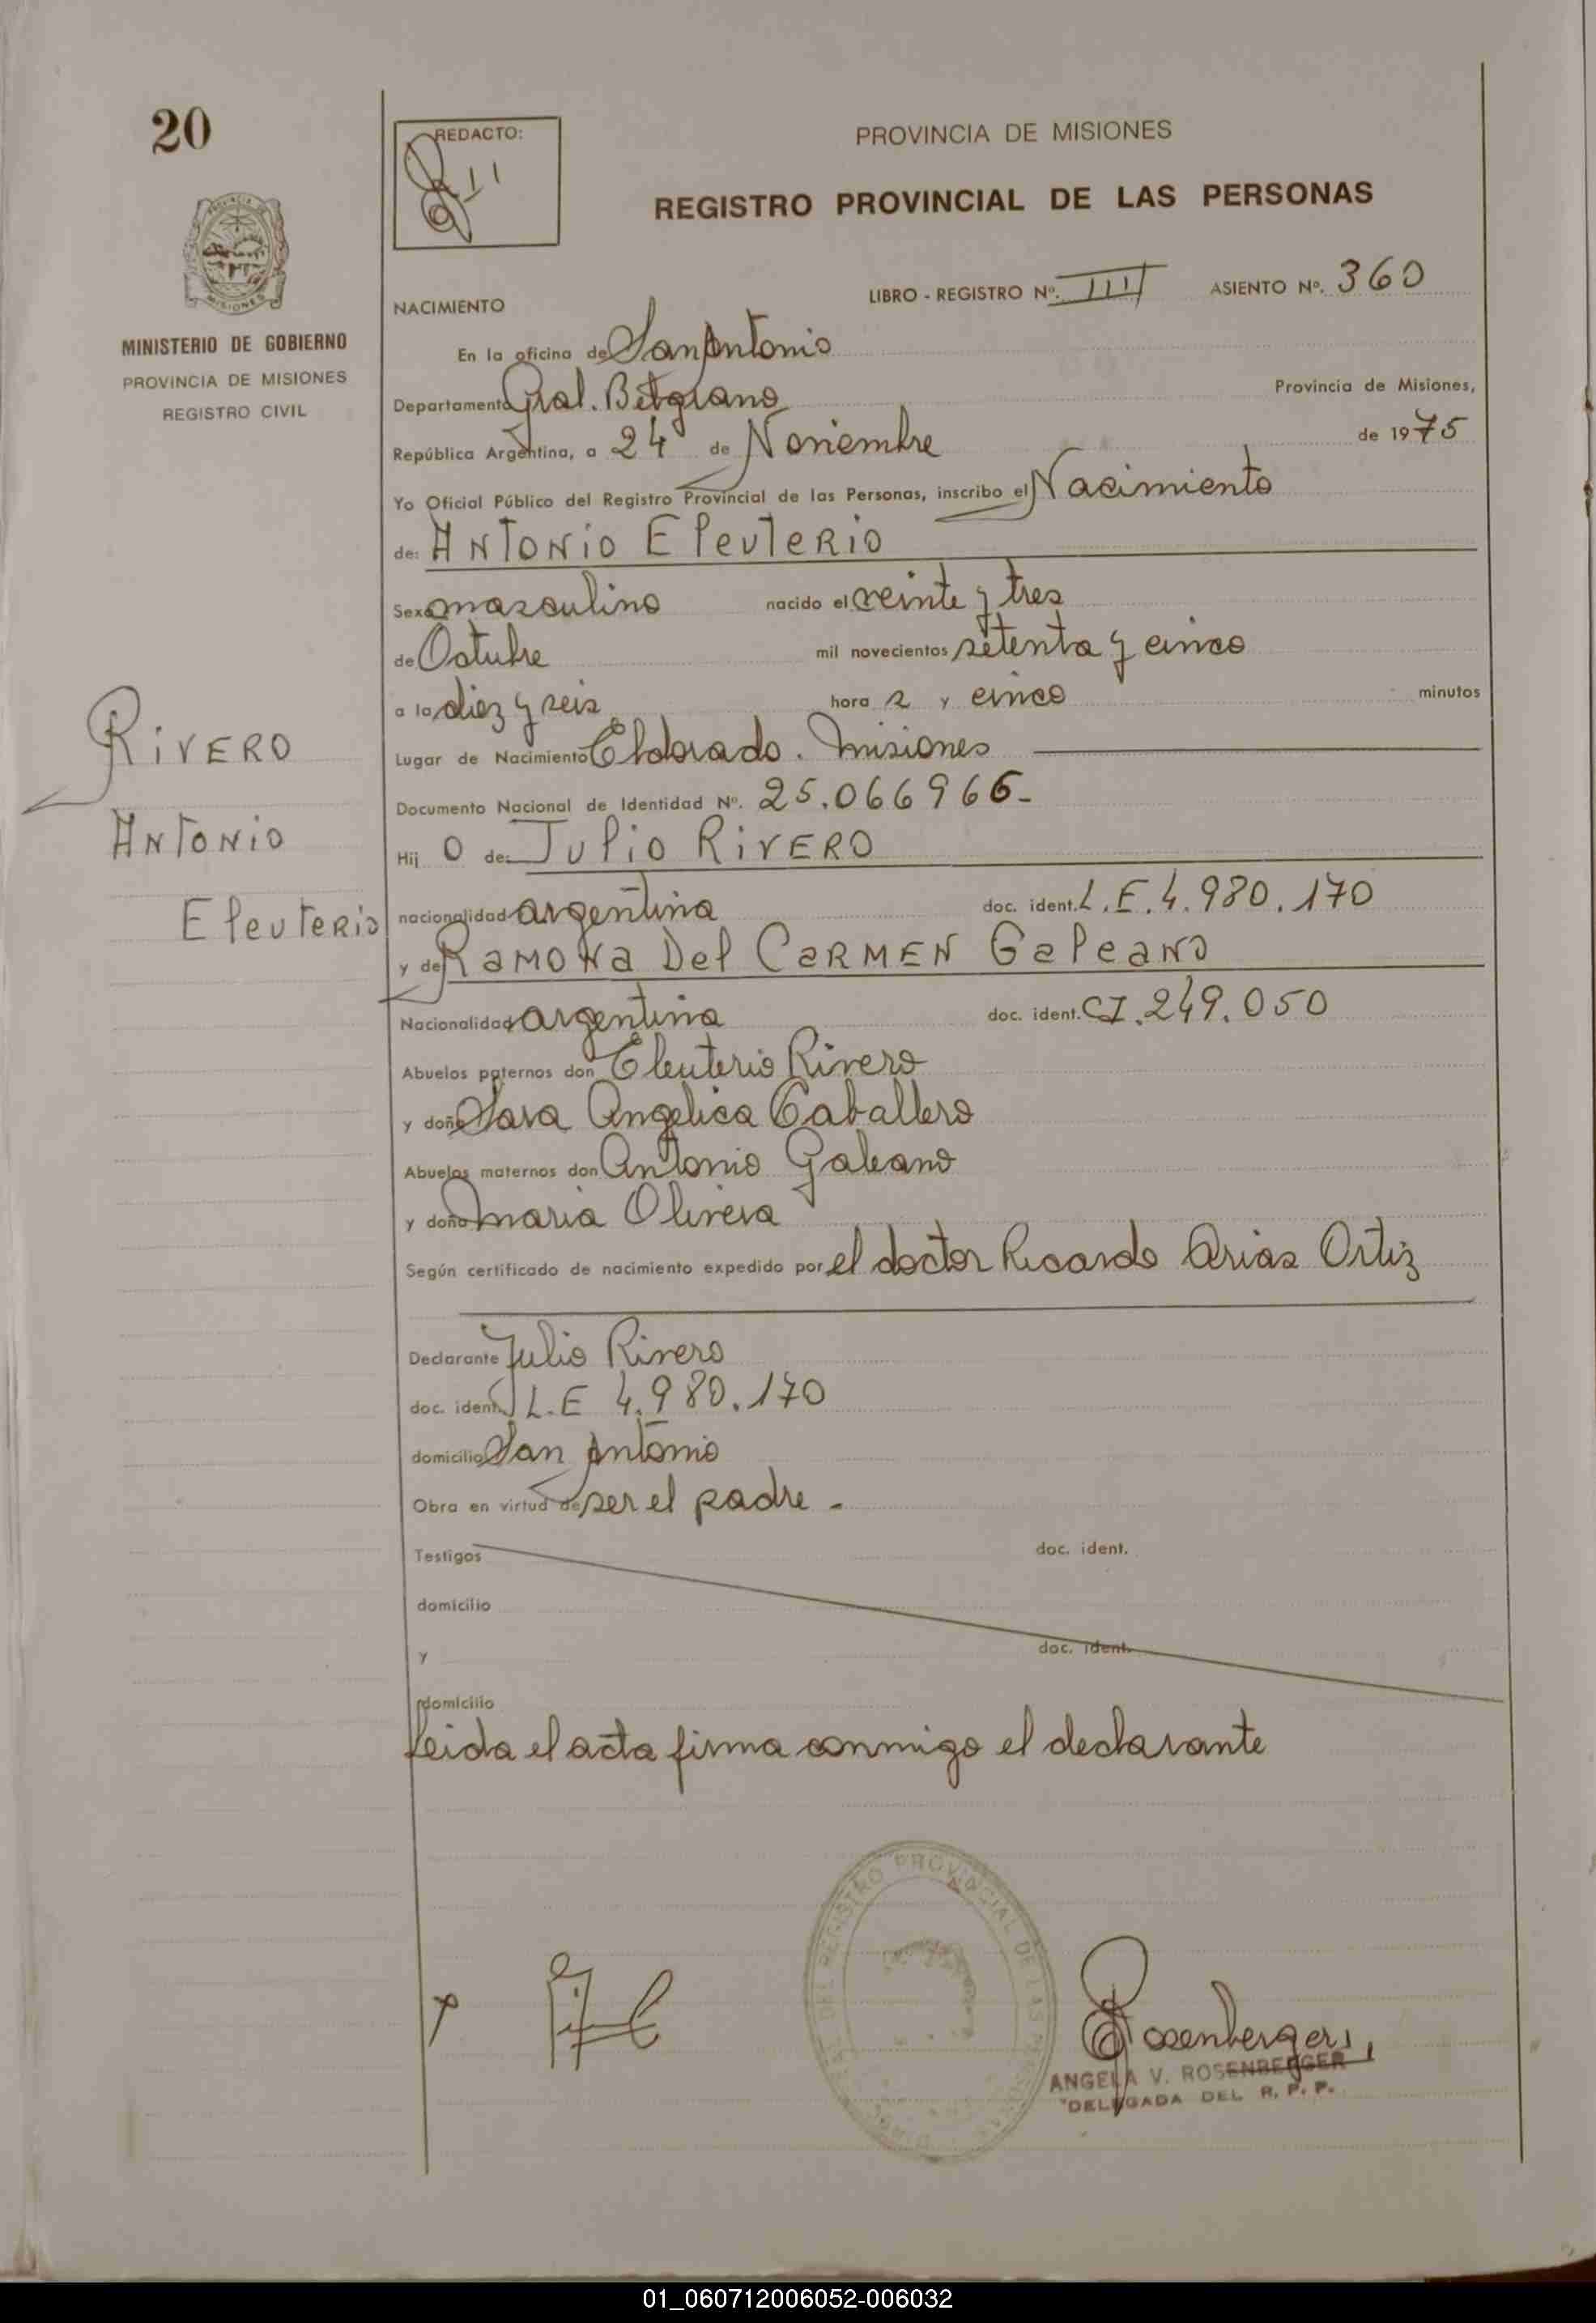 20
REDACTO:
PROVINCIA DE MISIONES
REGISTRO PROVINCIAL DE LAS PERSONAS
MISIONES
MINISTERIO DE GOBIERNO
PROVINCIA DE MISIONES
REGISTRO CIVIL
NACIMIENTO
LIBRO - REGISTRO Nº. III ASIENTO Nº. 360
En la oficina de San Antonio
Departamento Gral. Belgrano Provincia de Misiones,
República Argentina, a 24 de Noviembre de 1975
Yo Oficial Público del Registro Provincial de las Personas, inscribo el Nacimiento
de: ANTONIO EleuTeRio
Sexo masculino nacido el veinte y tres
de Octubre mil novecientos setenta y cinco
a la diez y seis hora s y cinco minutos
Lugar de Nacimiento Eldorado. Misiones
Documento Nacional de Identidad Nº. 25.066966-
Hij o de: Julio RiVERO
nacionalidad argentina doc. ident. L.E.4.980.170
y de RaMONa Del CaRMEN GaleaNO
Nacionalidad argentina doc. ident. CI.249.050
Abuelos paternos don Eleuterio Rivero
y doña Sara Angelica Caballero
Abuelos maternos don Antonio Galeano
y doña Maria Olivera
Según certificado de nacimiento expedido por el doctor Ricardo Arias Ortiz
Declarante Julio Rivero
doc. ident. L.E 4.980.170
domicilio San Antonio
Obra en virtud de ser el padre -
Testigos doc. ident.
domicilio
y doc. ident.
domicilio
Leida el acta firma conmigo el declarante
RiVERO
ANTONIO
EleuTeRio
DEL REGISTRO PROVINCIAL DE LAS PERSONAS
Rosenberger
ANGELA V. ROSENBERGER
DELEGADA DEL R. P. P.
01_060712006052-006032